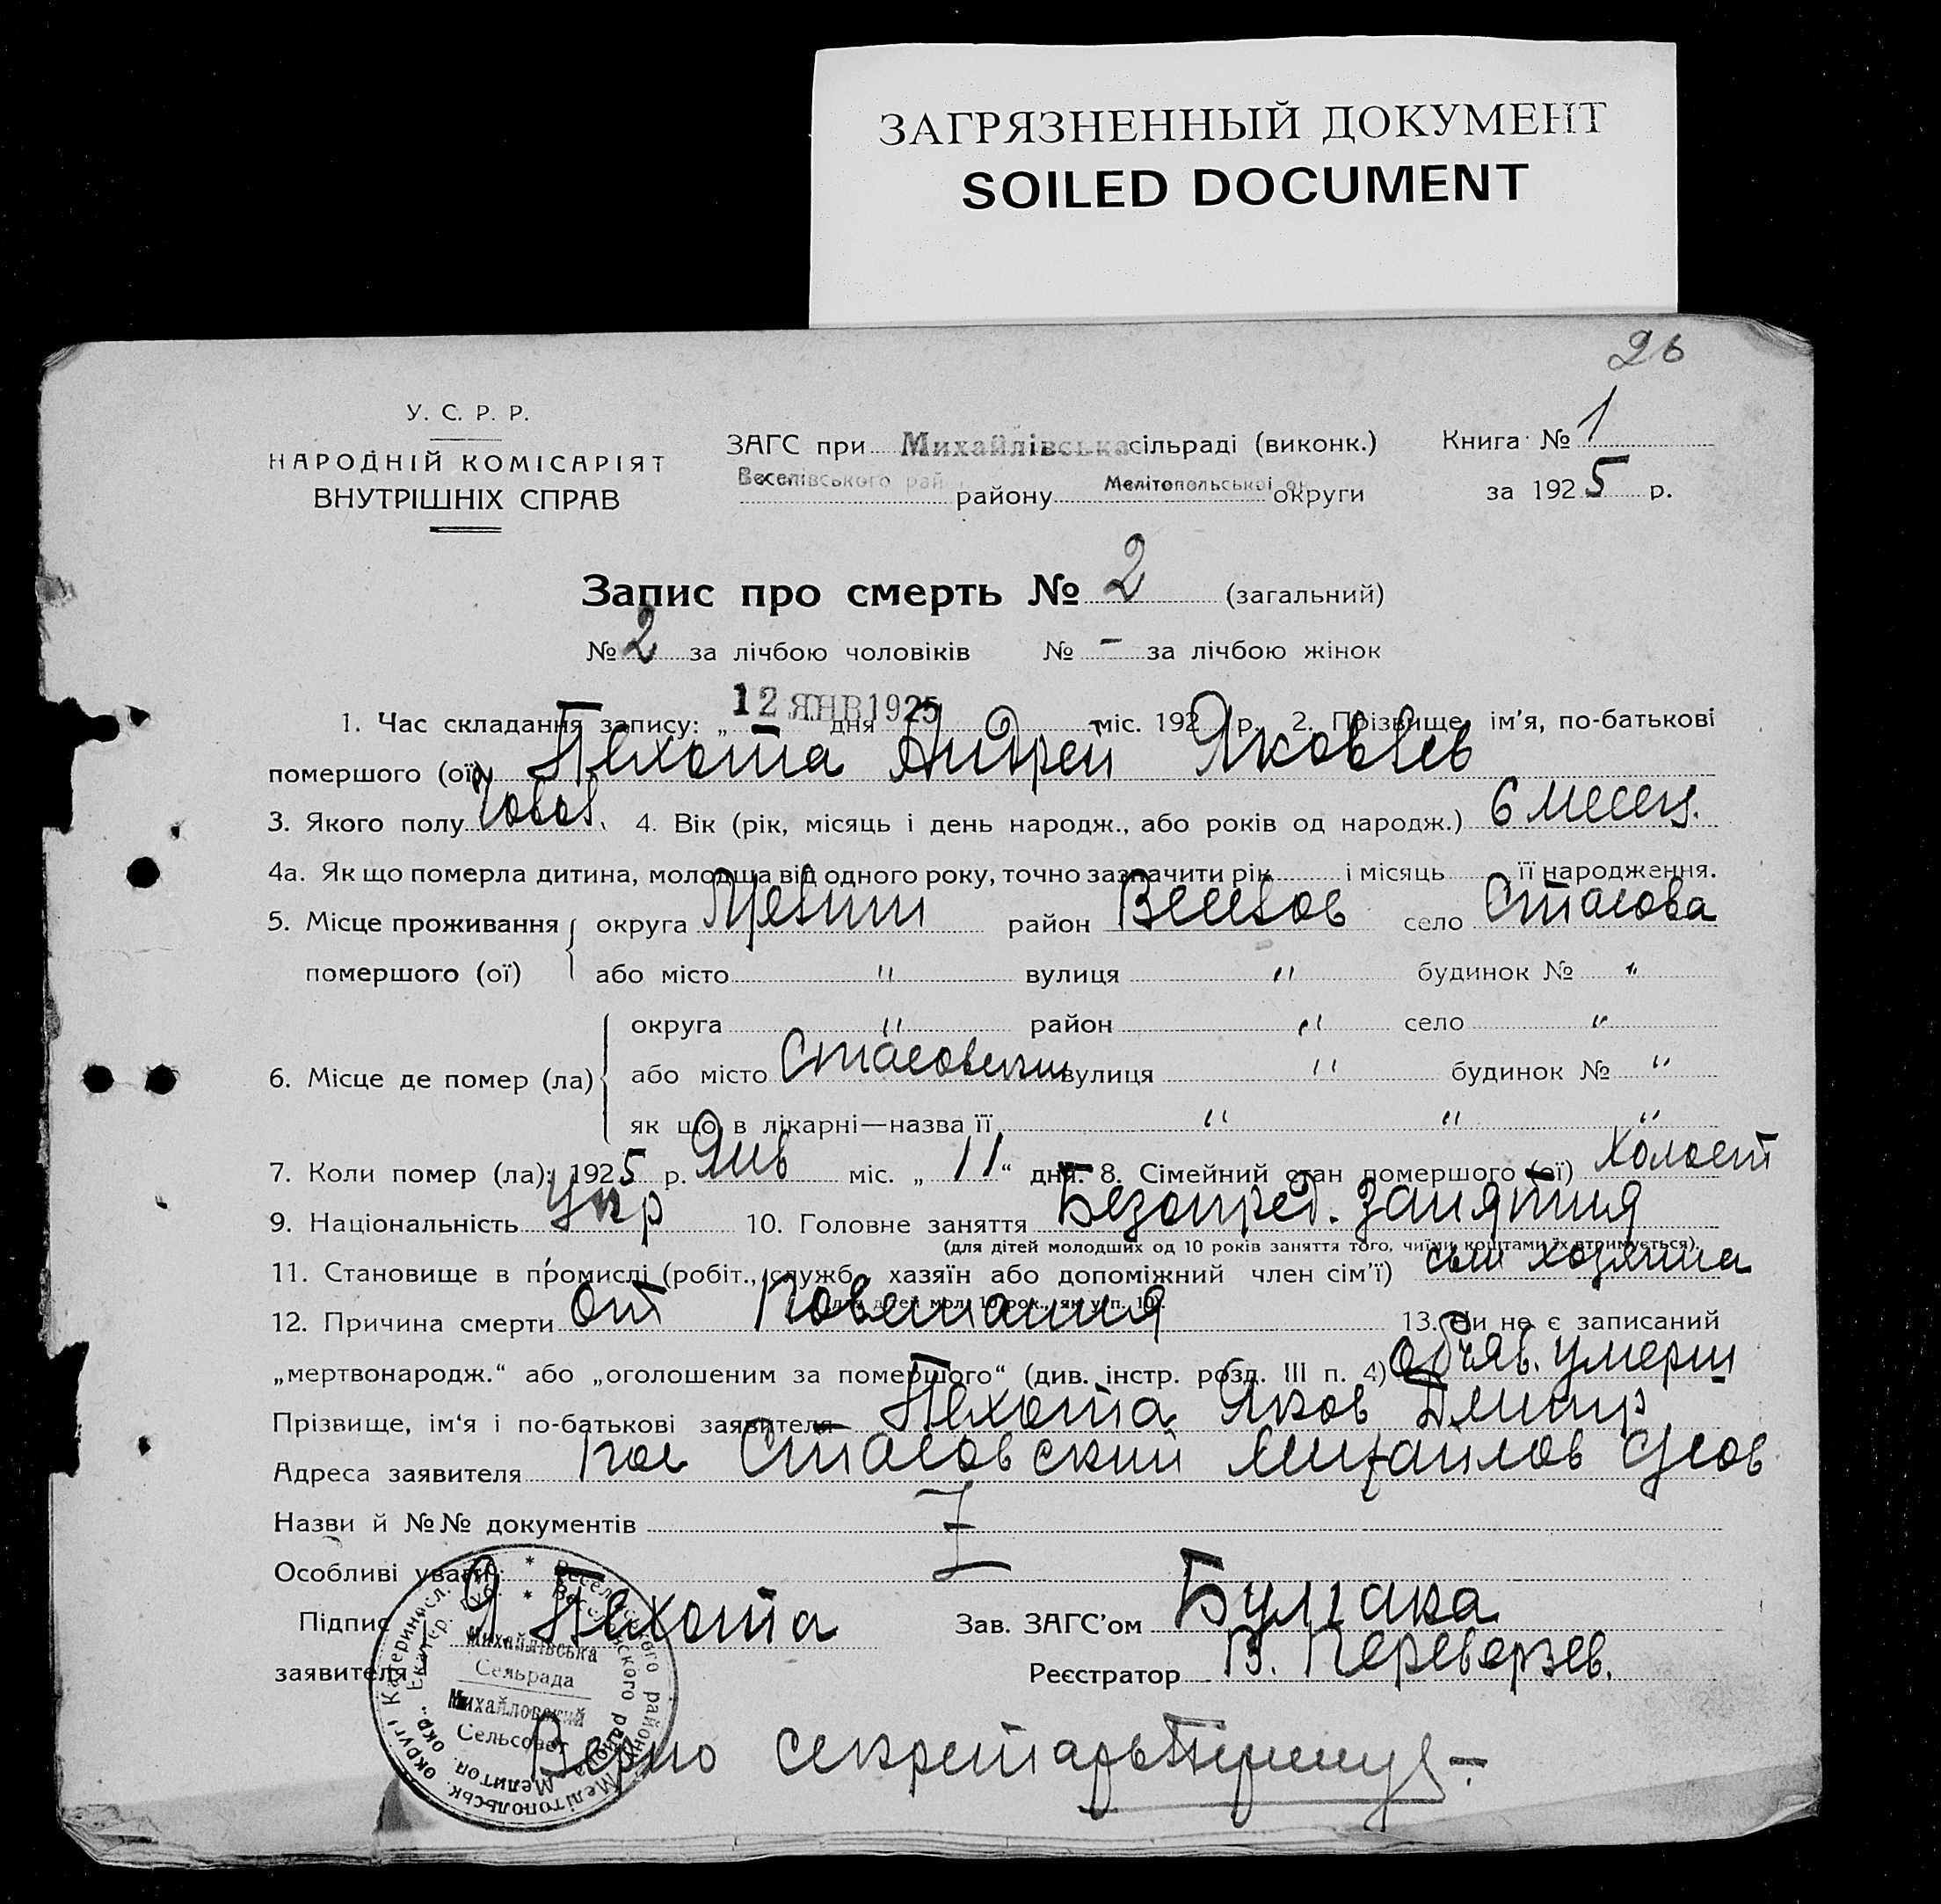 ЗАГРЯЗНЕННЫЙ ДОКУМЕНТ
SOILED DOCUMENT
26
У. С. Р. Р.
НАРОДНІЙ КОМІСАРІЯТ
ВНУТРІШНІХ СПРАВ
ЗАГС при Михайлівська сільраді (виконк.)
Веселівського рай району Мелітопольської ок округи
Книга № 1
за 1925 р.
Запис про смерть № 2 (загальний)
№ 2 за лічбою чоловіків № - за лічбою жінок
1. Час складання запису: „ 12 ЯНВ 1925 дня міс. 192 р. 2. Прізвище, ім'я, по-батькові
помершого (ої) Пехота Андрей Яковлев
3. Якого полу 4. Вік (рік, місяць і день народж., або років од народж.) 6 месец.
4а. Як що померла дитина, молодша від одного року, точно зазначити рік і місяць її народження.
5. Місце проживання округа район село Стасова
помершого (ої) або місто " вулиця " будинок № "
округа " район " село "
6. Місце де помер (ла) або місто вулиця " будинок № "
як що в лікарні—назва її " " "
7. Коли помер (ла): 1925 р. Янв міс. „ 11 “ дня. 8. Сімейний стан помершого (ої) холост
9. Національність Укр 10. Головне заняття Безопред. занятия
(для дітей молодших од 10 років заняття того, чиїми коштами їх втримується).
11. Становище в промислі (робіт., служб., хазяїн або допоміжний член сім'ї) сын хозяина
(для дітей мол. 10 рок., як у п. 10).
12. Причина смерти от 13. Чи не є записаний
„мертвонародж.“ або „оголошеним за помершого“ (див. інстр. розд. III п. 4) объяв. умерш
Прізвище, ім'я і по-батькові заявителя Пехота Яков Дмитр
Адреса заявителя пос Стасовский Михайлов
Назви й №№ документів
Особливі уваги:
Підпис
заявителя Я Пехота
Зав. ЗАГС'ом
Реєстратор В. Переверзев.
Михайлівська
Сельрада
Михайловский
Сельсовет
Верно секретарь